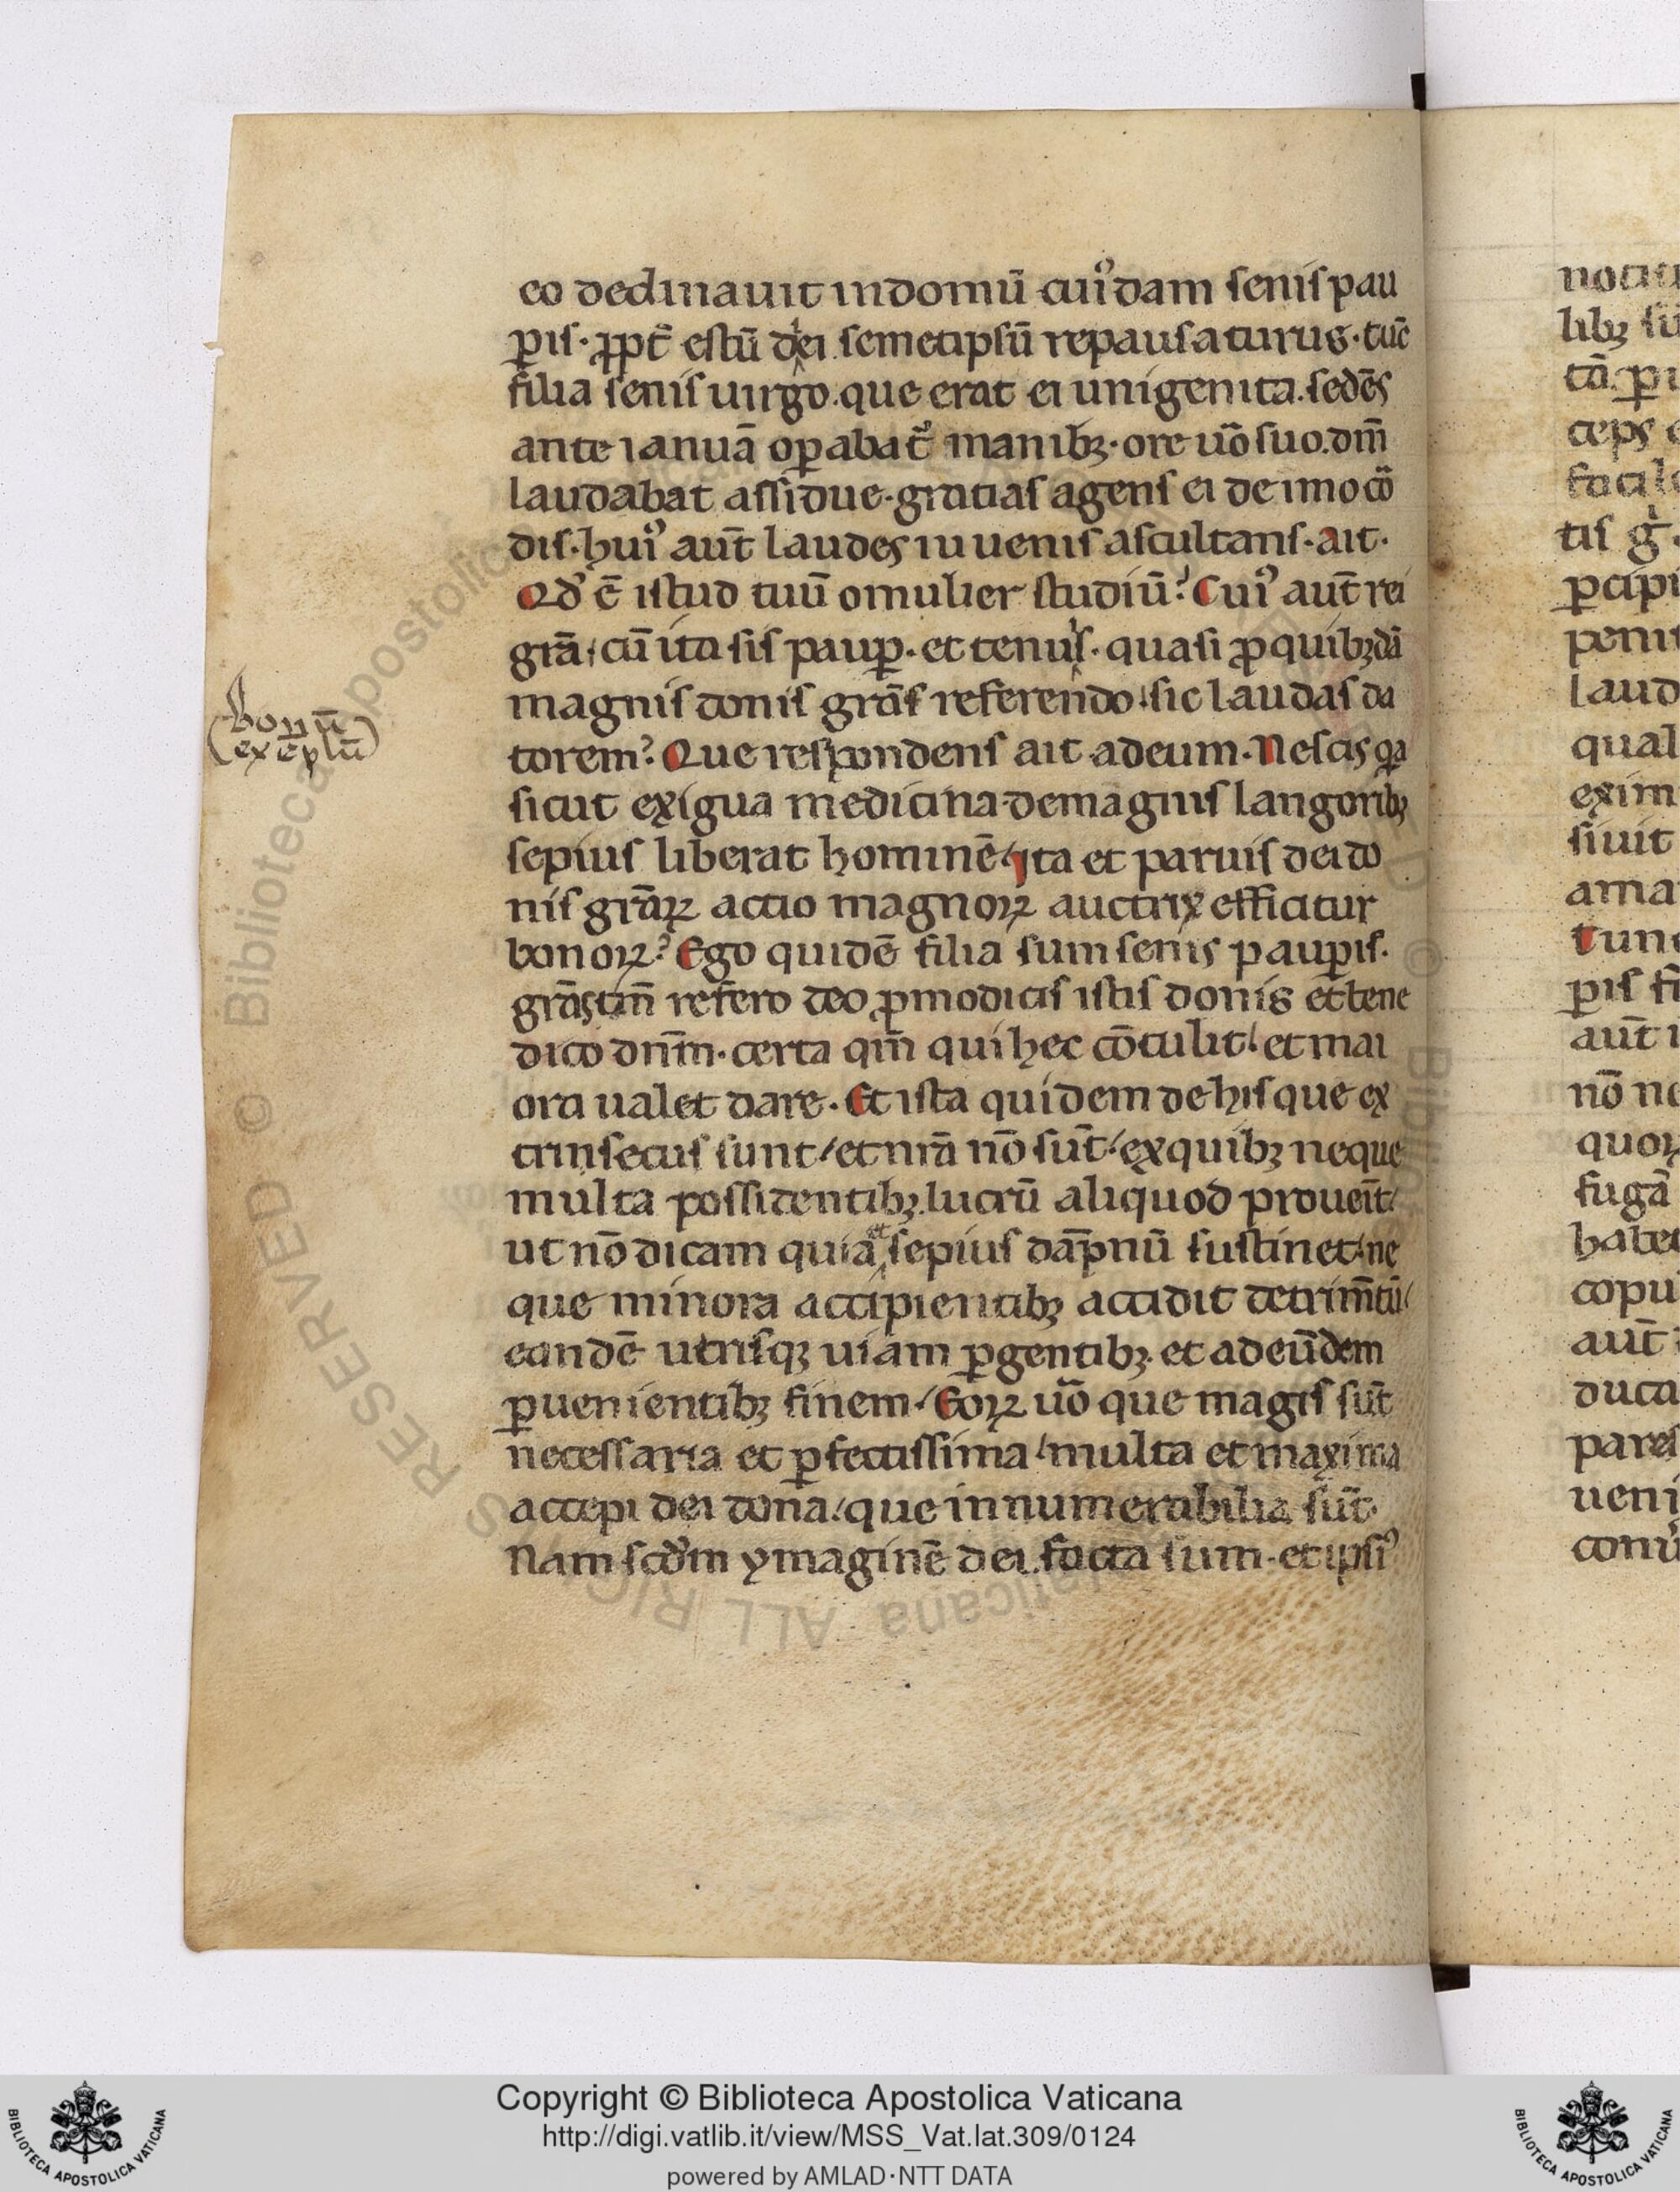 eo declinauit in domū cuiꝰdam senis pau
ꝑis. ꝓpt̄ estū dei semetipsū repausaturus. tūc
filia senis uirgo. que erat ei unigenita. sedēs
ante ianuā oꝑabat᷑ manibꝫ. ore ūo suo. dm̄
laudabat assidue. gratias agens ei de imo cō
dis. huiꝰ aut̄ laudes iuuenis ascultans. ait.
Qd̓ ē istud tuū o mulier studiū? Cuiꝰ aut̄ rei
grā, cū ita sis pauꝑ. et tenuis. quasi ꝓ quibꝫdā
magnis donis grās referendo, sic laudas da
torem? Que respondens ait ad eum. Nescis qa
sicut exigua medicina de magnis langoribꝫ
sepius liberat hominē, ita et paruis dei do
nis grāꝝ actio magnoꝝ auctrix efficitur
bonoꝝ? Ego quidē filia sum senis pauꝑis.
grās tm̄ refero deo ꝓ modicis istis donis et bene
dico dnm̄. certa qm̄ qui hec cōtulit, et mai
ora ualet dare. Et ista quidem de his que ex
trinsecus sunt, et nrā nō sūt, ex quibꝫ neque
multa possidentibꝫ lucrū aliquod prouenīt,
ut nō dicam quia et sepius dāpnū sustinet, ne
que minora accipientibꝫ accidit detrim̄tū,
eandē utrisqꝫ uiam ꝑgentibꝫ. et ad eūdem
ꝑuenientibꝫ finem. Eoꝝ ūo que magis sūt
necessaria et ꝑfectissima, multa et maxima
accepi dei dona, que innumerabilia sūt.
Nam scd̓m ymaginē dei facta sum. et ipsiꝰ
Bonū
exēplū
Copyright © Biblioteca Apostolica Vaticana
http://digi.vatlib.it/view/MSS_Vat.lat.309/0124
powered by AMLAD·NTT DATA
BIBLIOTECA APOSTOLICA VATICANA
BIBLIOTECA APOSTOLICA VATICANA